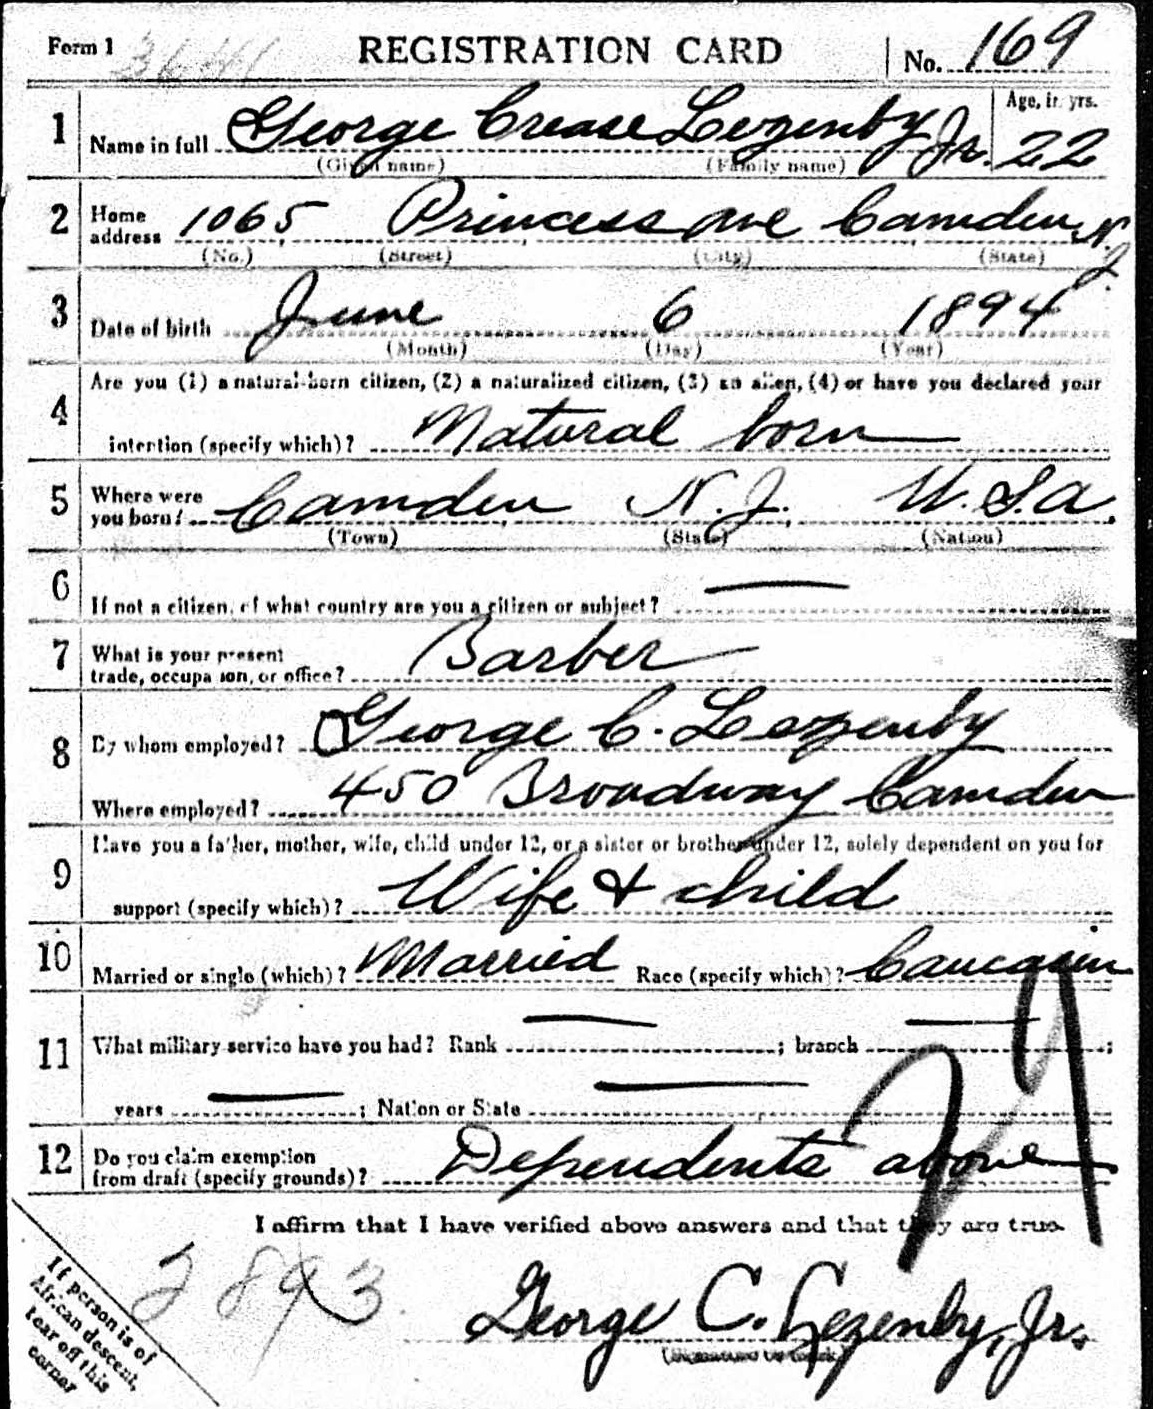 Form 1 REGISTRATION CARD No. 169
1 Name in full George Crease Lezenby Jr. Age, in yrs. 22
(Given name) (Family name)
2 Home address 1065 Princess ave Camden N.J.
(No.) (Street) (City) (State)
3 Date of birth June 6 1894
(Month) (Day) (Year)
4 Are you (1) a natural-born citizen, (2) a naturalized citizen, (3) an alien, (4) or have you declared your
intention (specify which)? Natural born
5 Where were you born? Camden N.J. U.S.a.
(Town) (State) (Nation)
6 If not a citizen, of what country are you a citizen or subject? —
7 What is your present trade, occupation, or office? Barber
8 By whom employed? George C. Lezenby
Where employed? 450 Broadway Camden
9 Have you a father, mother, wife, child under 12, or a sister or brother under 12, solely dependent on you for
support (specify which)? Wife & child
10 Married or single (which)? Married Race (specify which)? Caucasin
11 What military service have you had? Rank — ; branch — ;
years — ; Nation or State —
12 Do you claim exemption from draft (specify grounds)? Dependents above
I affirm that I have verified above answers and that they are true.
2893
George C. Lezenby, Jr.
If person is of
African descent,
tear off this
corner